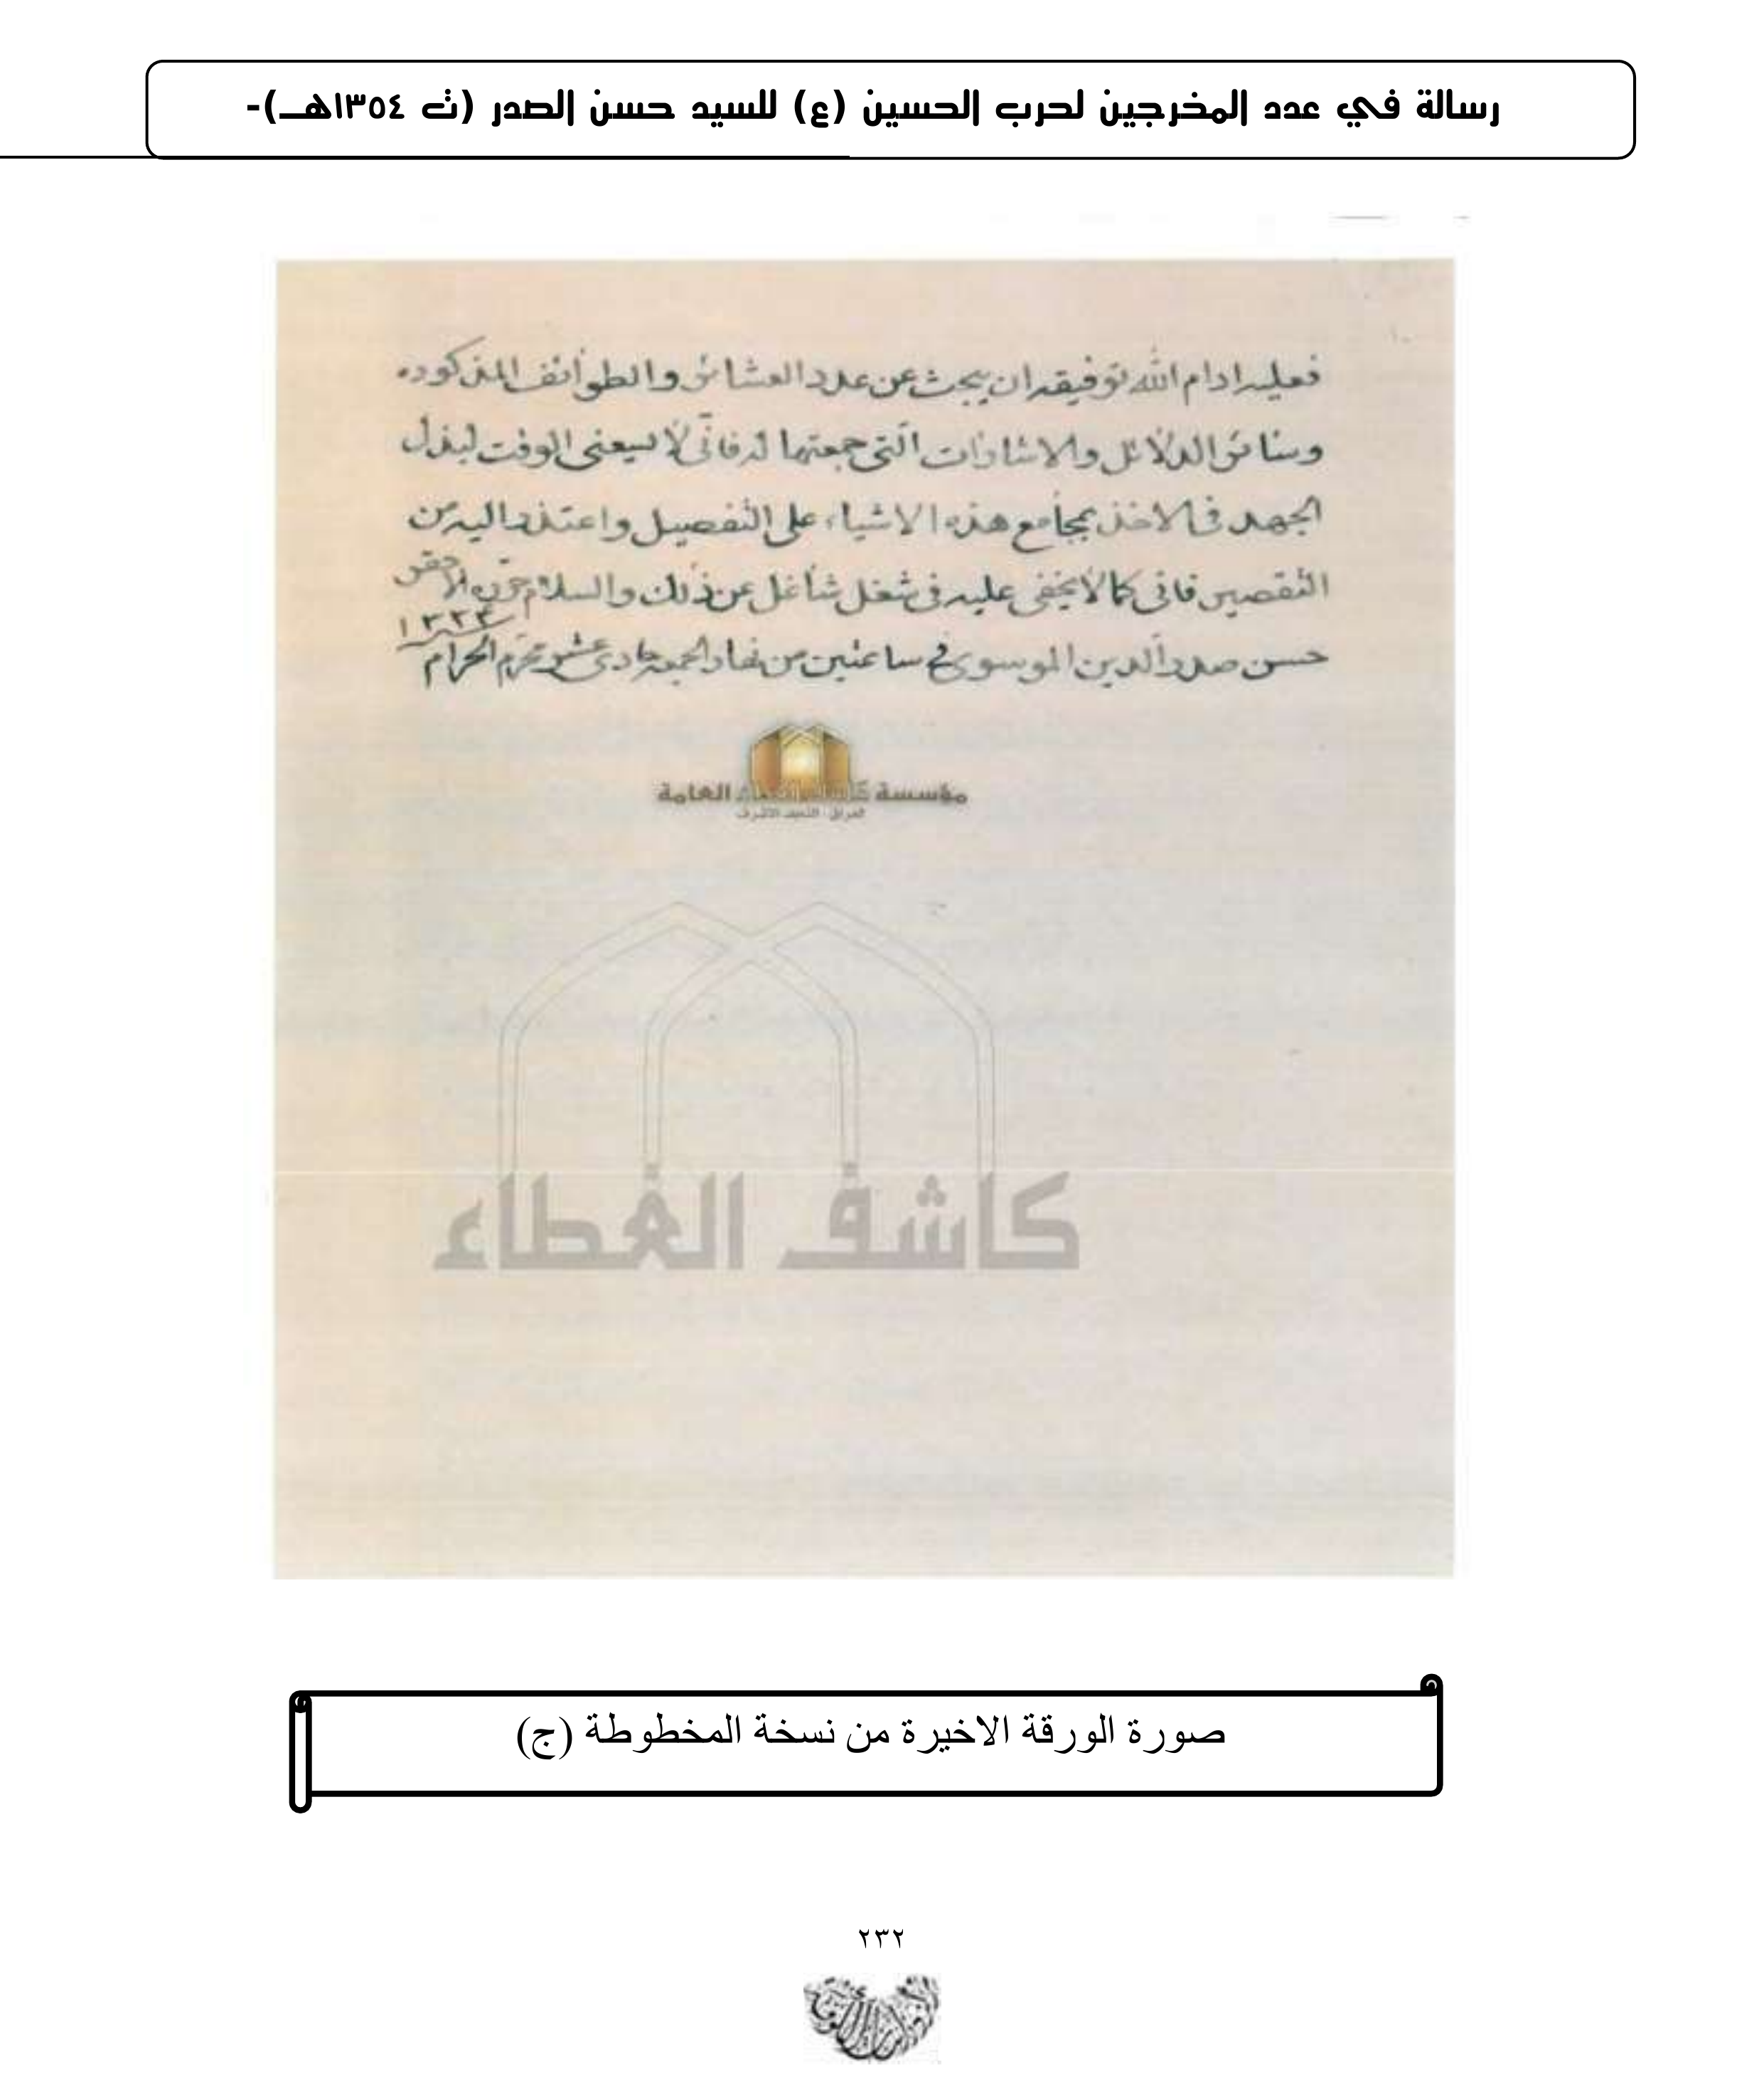 رسالة في عدد المخرجين لحرب الحسين (ع) للسيد حسن الصدر (ت ١٣٥٤هـ)-
فعليه ادام الله توفيقه ان يبحث عن عدد العشائر والطوائف المذكوره
وسائر الدلائل والاشارات الّتى جمعتها له فانّى لا يسعنى الوقت لبذل
الجهد فى الاخذ بمجامع هذه الاشياء على التفصيل واعتذر اليه من
التقصير فانى كما لا يخفى عليه فى شغل شاغل عن ذلك والسلام حرّره الاحقر
حسن صدر الدين الموسوى فى ساعتين من نهار الجمعه حادى عشر محرّم الحرام
مؤسسة كاشف الغطاء العامة
العراق - النجف الاشرف
كاشف الغطاء
صورة الورقة الاخيرة من نسخة المخطوطة (ج)
٢٣٢